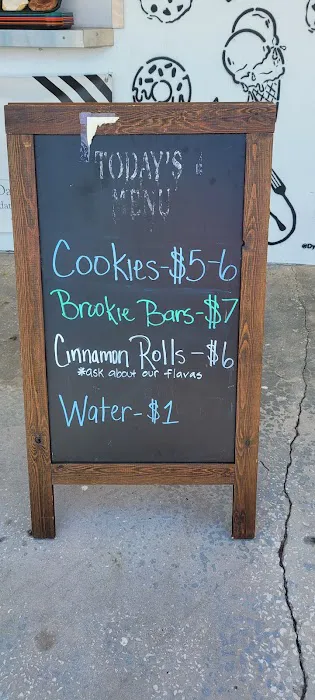 TODAY'S
MENU
Cookies-$5-6
Brookie Bars-$7
Cinnamon Rolls-$6
*ask about our flavas
Water-$1